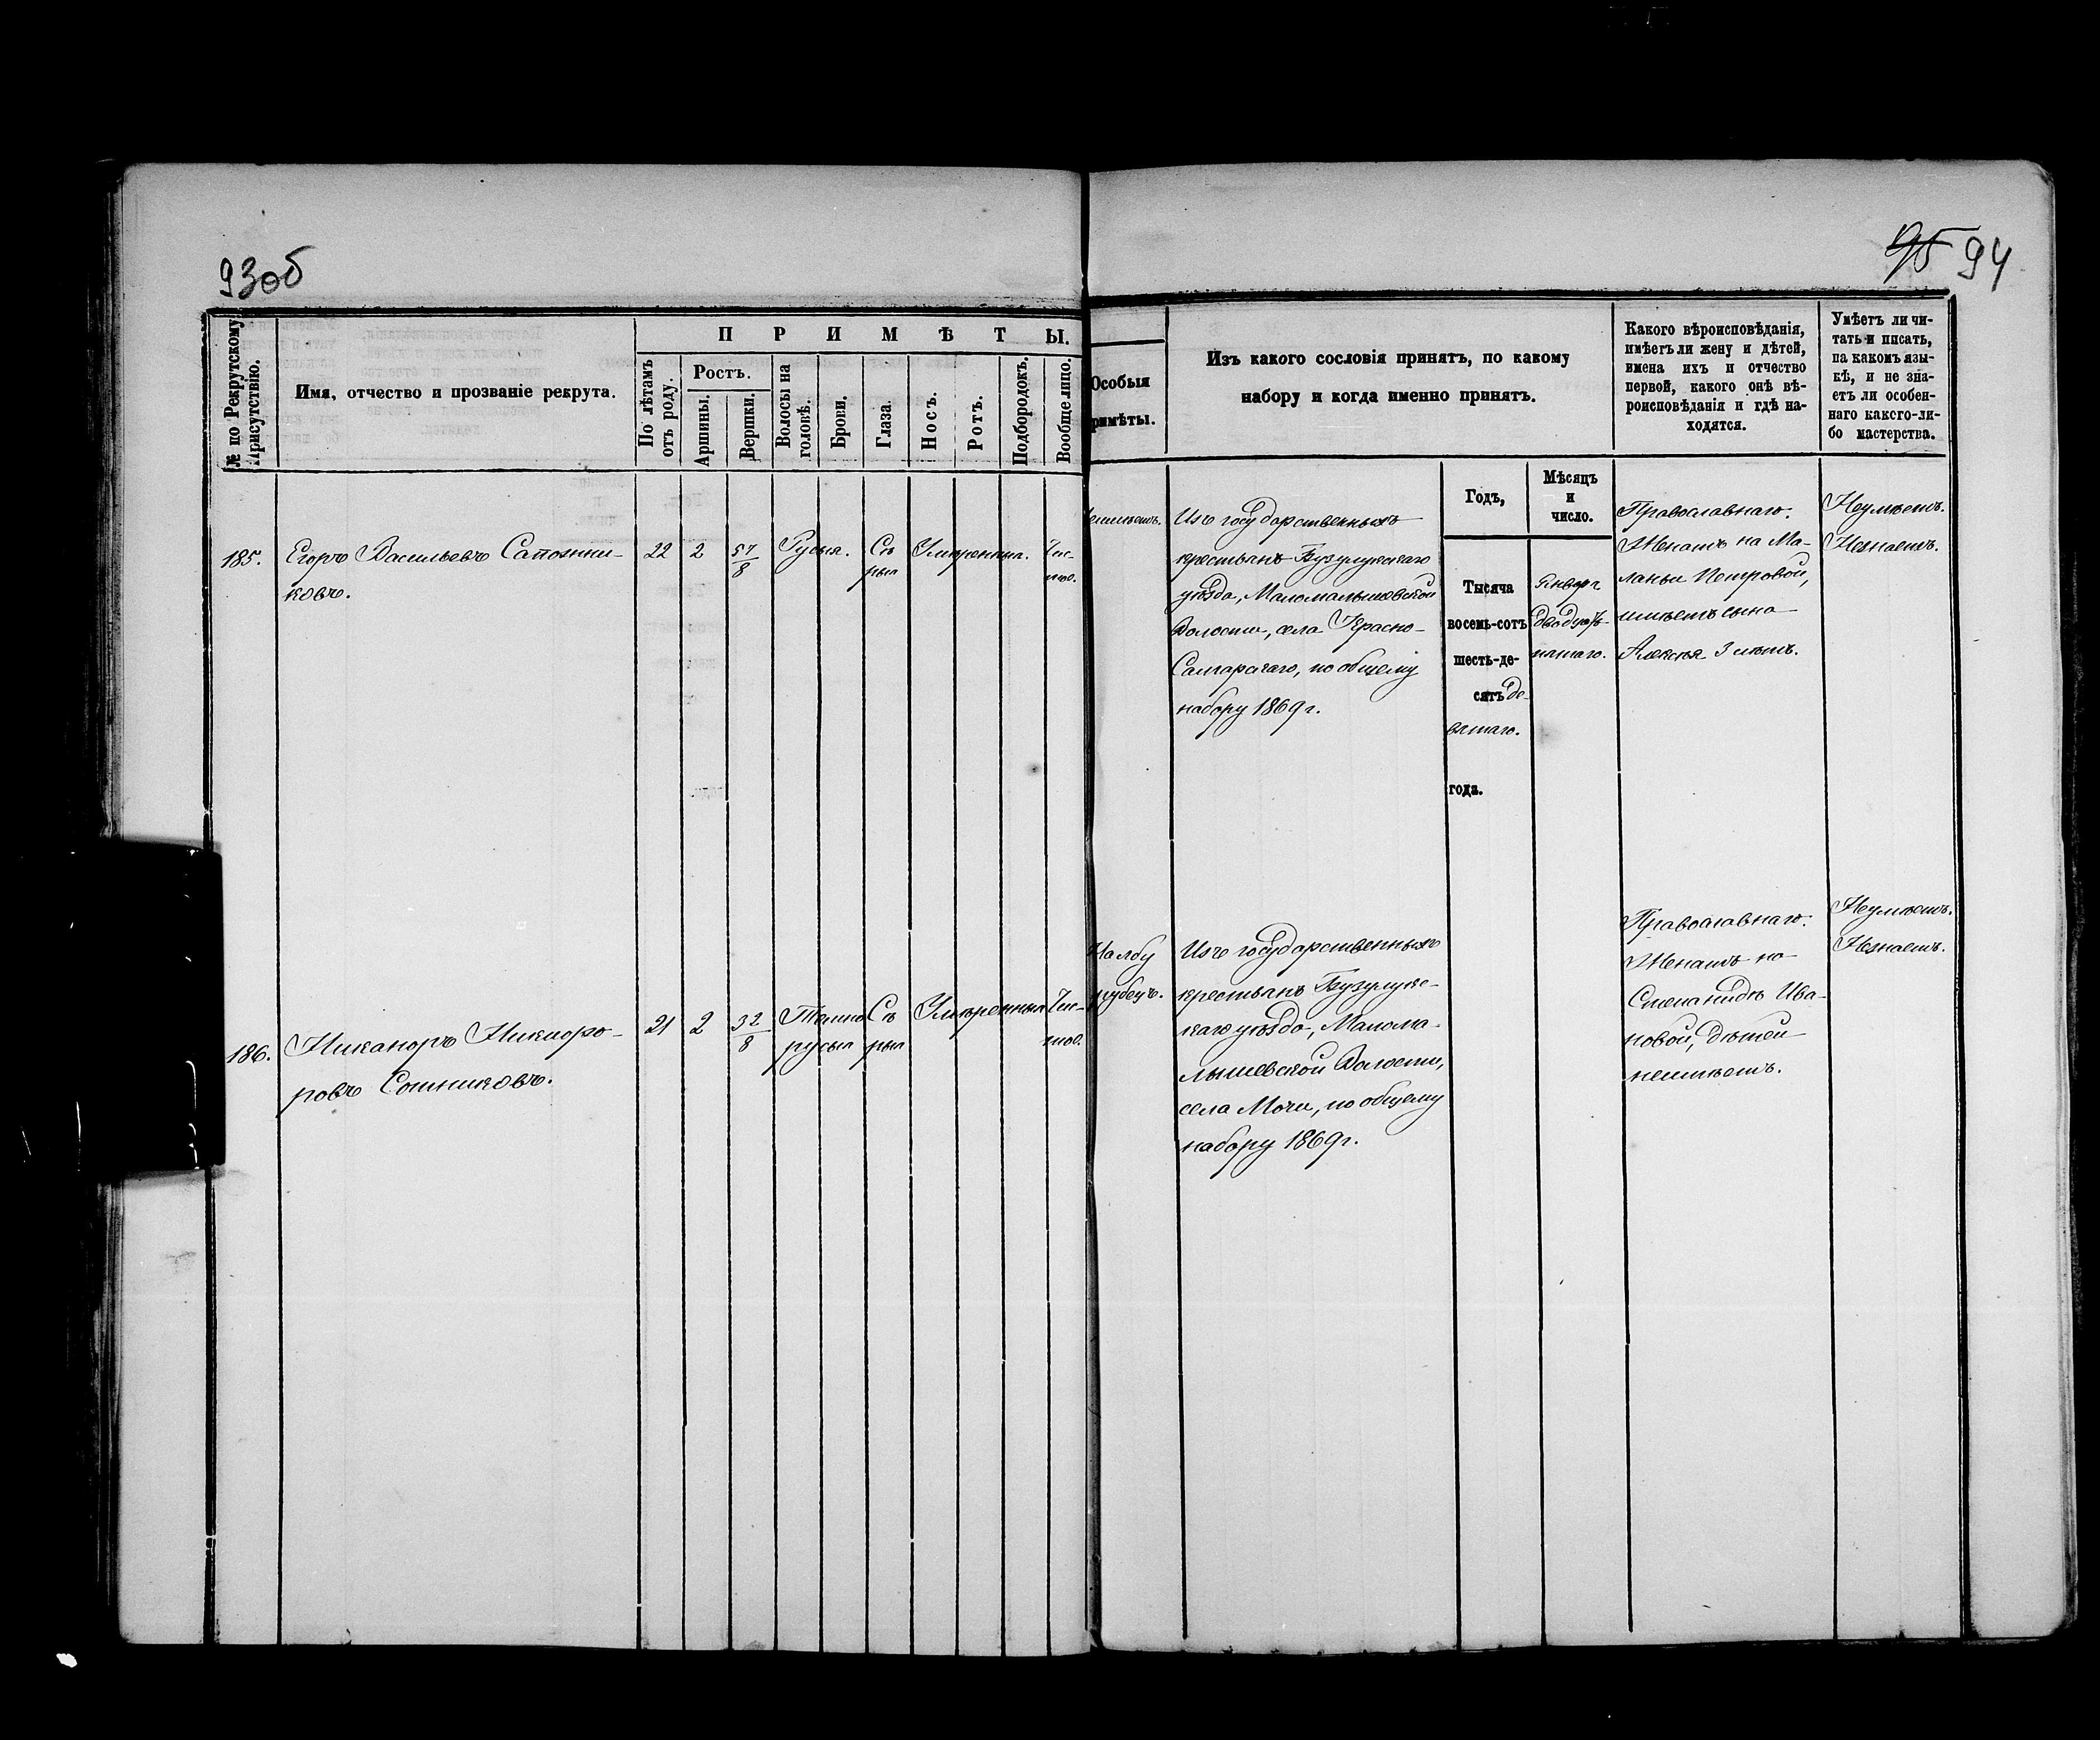 93об
95 94
№ по Рекрутскому Присутствію.
Имя, отчество и прозваніе рекрута.
ПРИМѢТЫ.
По лѣтамъ отъ роду.
Ростъ.
Аршины.
Вершки.
Волосы на головѣ.
Брови.
Глаза.
Носъ.
Ротъ.
Подбородокъ.
Вообще лицо.
Особыя
римѣты.
Изъ какого сословія принятъ, по какому
набору и когда именно принятъ.
Какого вѣроисповѣданія,
имѣетъ ли жену и дѣтей,
имена ихъ и отчество
первой, какого онѣ вѣ-
роисповѣданія и гдѣ на-
ходятся.
Умѣетъ ли чи-
тать и писать,
на какомъ язы-
кѣ, и не зна-
етъ ли особен-
наго какого-ли-
бо мастерства.
185.
Егоръ Васильевъ Сапожни-
ковъ.
22
2
5 7/8
Русыя.
Сѣ
рыя
Умѣренныя.
Чис-
тое.
еимѣетъ.
Изъ государственныхъ
крестьянъ Бузулукскаго
уѣзда, Маломалышевской
Волости, села Красно-
Самарскаго, по общему
набору 1869 г.
Годъ,
Тысяча
восемь-сотъ
шесть-де-
сятъ де-
вятаго.
года.
Мѣсяцъ
и
число.
Января
двадцать
пятаго.
Православнаго.
Женатъ на Ма-
ланьи Петровой,
имѣетъ сына
Алексѣя 3 лѣтъ.
Неумѣетъ.
Незнаетъ.
186.
Никаноръ Никифо-
ровъ Сотниковъ.
21
2
3 2/8
Темно
русыя
Сѣ
рыя
Умѣренныя
Чис-
тое.
На лбу
рубецъ.
Изъ государственныхъ
крестьянъ Бузулукс-
каго уѣзда, Малома-
лышевской Волости,
села Мочи, по общему
набору 1869 г.
Православнаго.
Женатъ на
Степанидѣ Ива-
новой, дѣтей
неимѣетъ.
Неумѣетъ.
Незнаетъ.